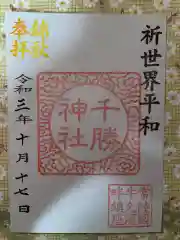 祈世界平和
千勝
神社
総社
奉拝
令和三年十月十七日